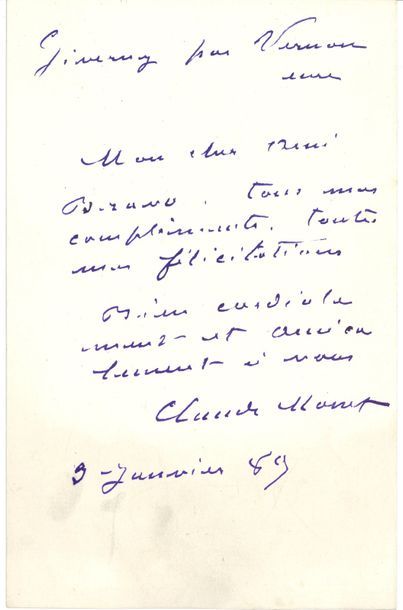 Giverny par Vernon
eure
Mon cher ami
Bravo. tous mes
compliments. toutes
mes félicitations
Bien cordiale
ment et amica
lement à vous
Claude Monet
9 Janvier 89